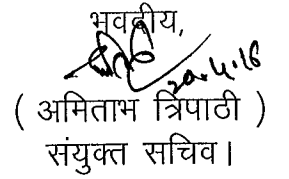 भवदीय,
20.4.16
( अमिताभ त्रिपाठी )
संयुक्त सचिव।